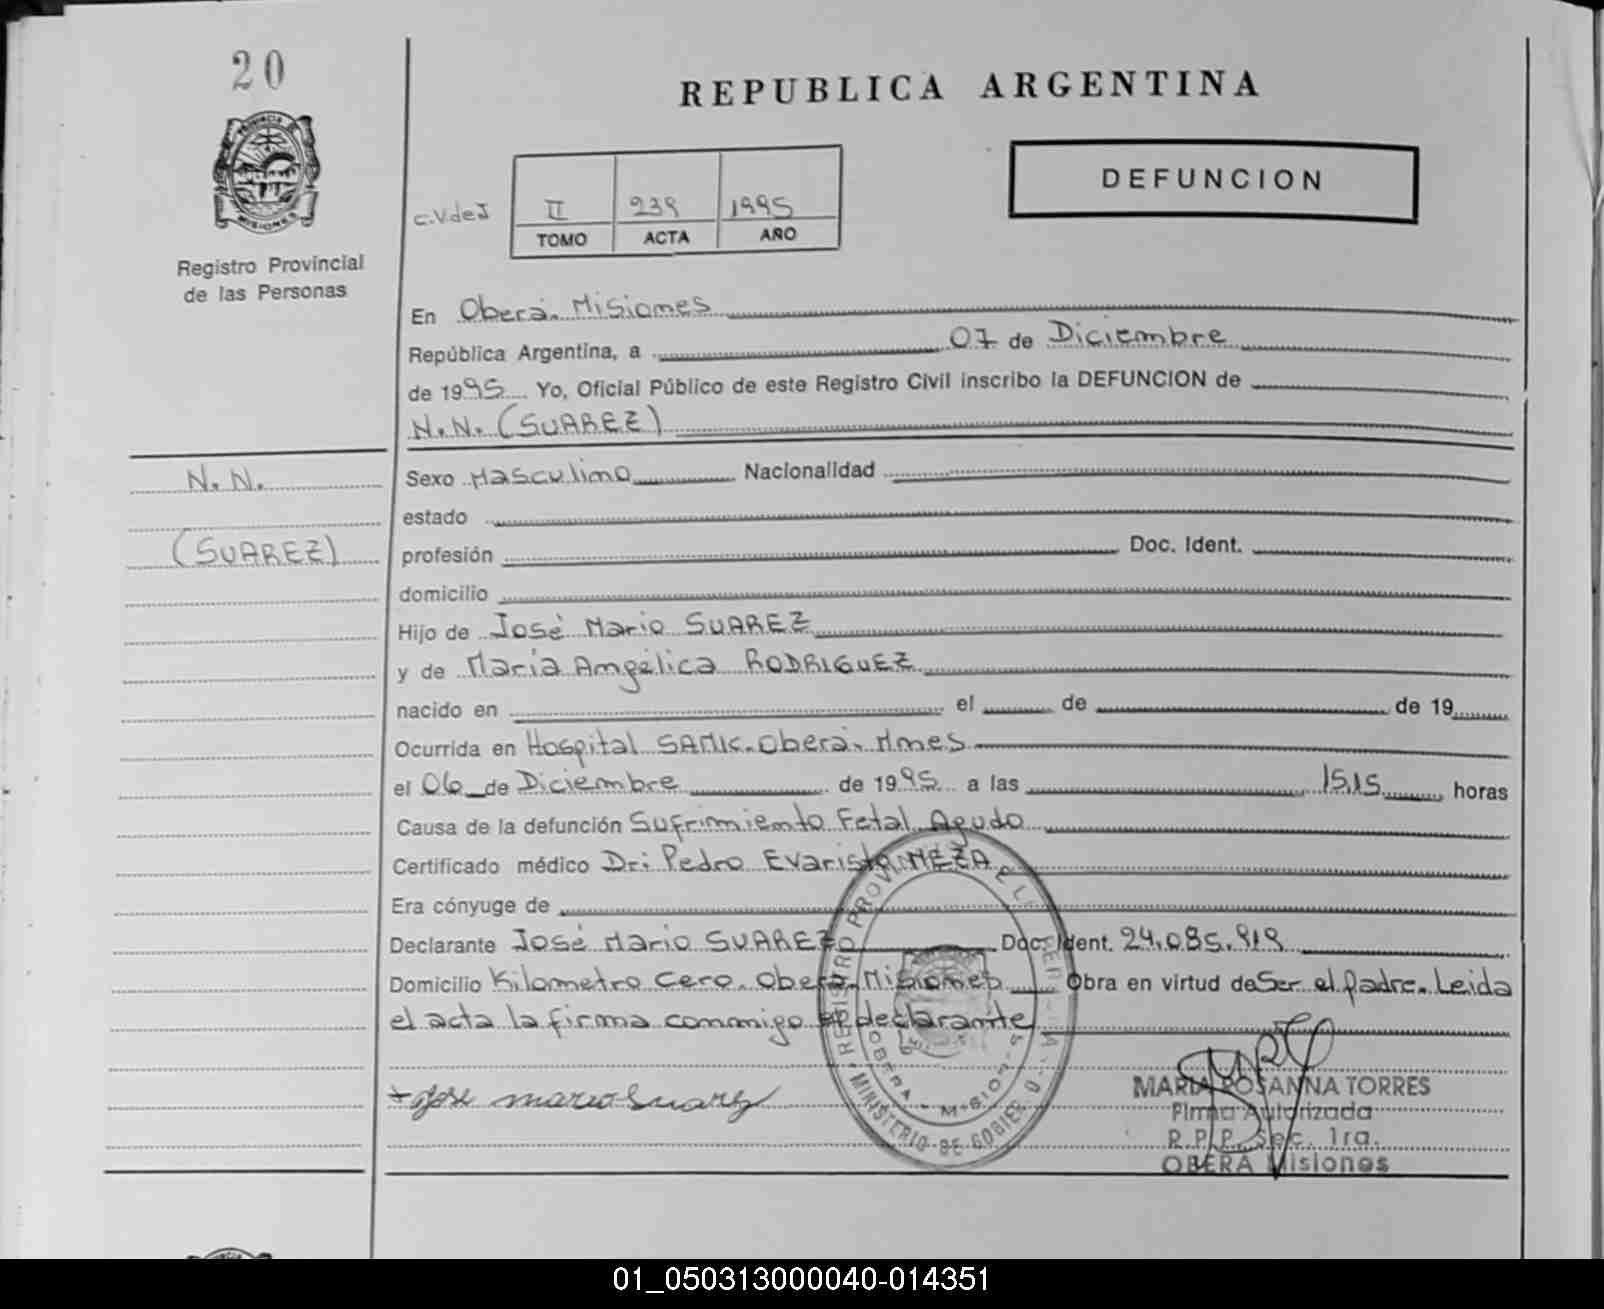 20
REPUBLICA ARGENTINA
PROVINCIA DE
MISIONES
Registro Provincial
de las Personas
DEFUNCION
c.VdeJ
II 239 1995
TOMO ACTA AÑO
En Oberá. Misiones
República Argentina, a 07 de Diciembre
de 1995 Yo, Oficial Público de este Registro Civil inscribo la DEFUNCION de
N.N. (SUAREZ)
N. N.
(SUAREZ)
Sexo Masculino Nacionalidad
estado
profesión Doc. Ident.
domicilio
Hijo de José Mario SUAREZ
y de María Angélica RODRIGUEZ
nacido en el de de 19
Ocurrida en Hospital SAMIC. Oberá. Mnes
el 06 de Diciembre de 1995 a las 15,15 horas
Causa de la defunción Sufrimiento Fetal Agudo
Certificado médico Dr: Pedro Evaristo MEZA
Era cónyuge de
Declarante José Mario SUAREZ Doc. Ident. 24.085.919
Domicilio Kilometro Cero. Oberá. Misiones Obra en virtud de Ser el padre. Leída
el acta la firma conmigo el declarante
Jose mario Suarez
MARIA ROSANNA TORRES
Firma Autorizada
R.P.P. Sec. 1ra.
OBERA Misiones
01_050313000040-014351